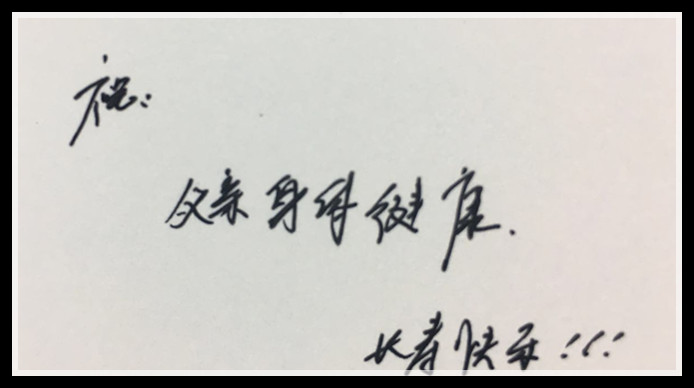 祝:
父亲身体健康.
长寿快乐!!!